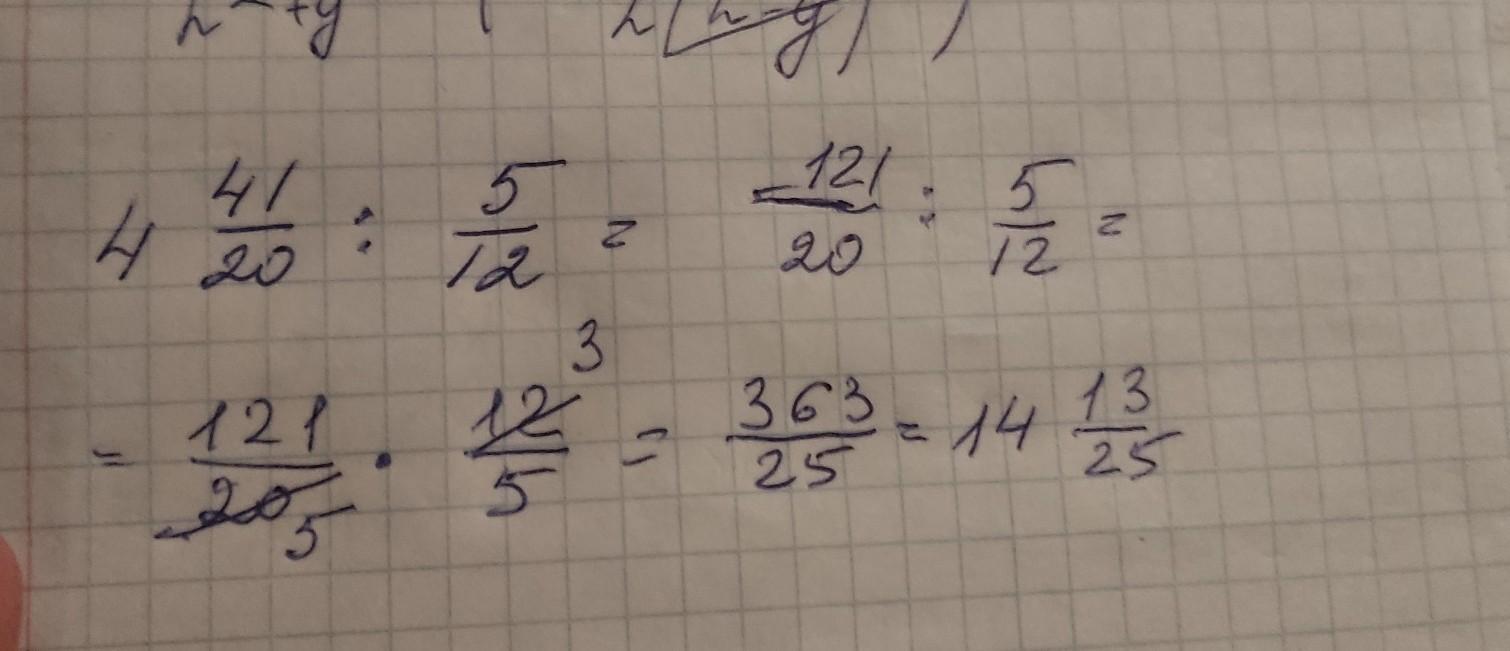 4 41/20 : 5/12 = 121/20 : 5/12 =
= 121/20 5 · 12/5 3 = 363/25 = 14 13/25